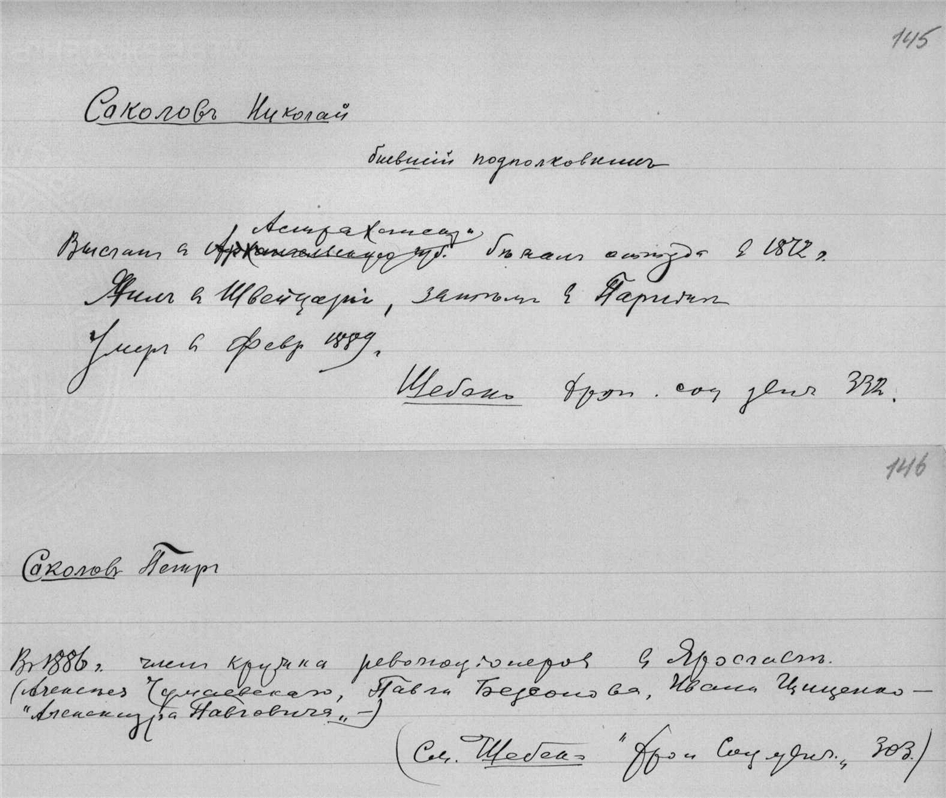 145
Соколовъ Николай
бывшій подполковникъ
Астраханскую
Высланъ въ Архангельскую губ. бѣжалъ оттуда въ 1872 г.
Жилъ въ Швейцаріи, затѣмъ въ Парижѣ
Умеръ въ февр 1889 г.
Щебеко Хрон. соц движ 332.
146
Соколовъ Петръ
Въ 1886 г. членъ кружка революціонеровъ въ Ярославлѣ.
Павла Бессонова, Ивана Цищенко —
"Александра Павловича„ —)
(См. Щебеко "Хрон Соц движ.„ 303.)